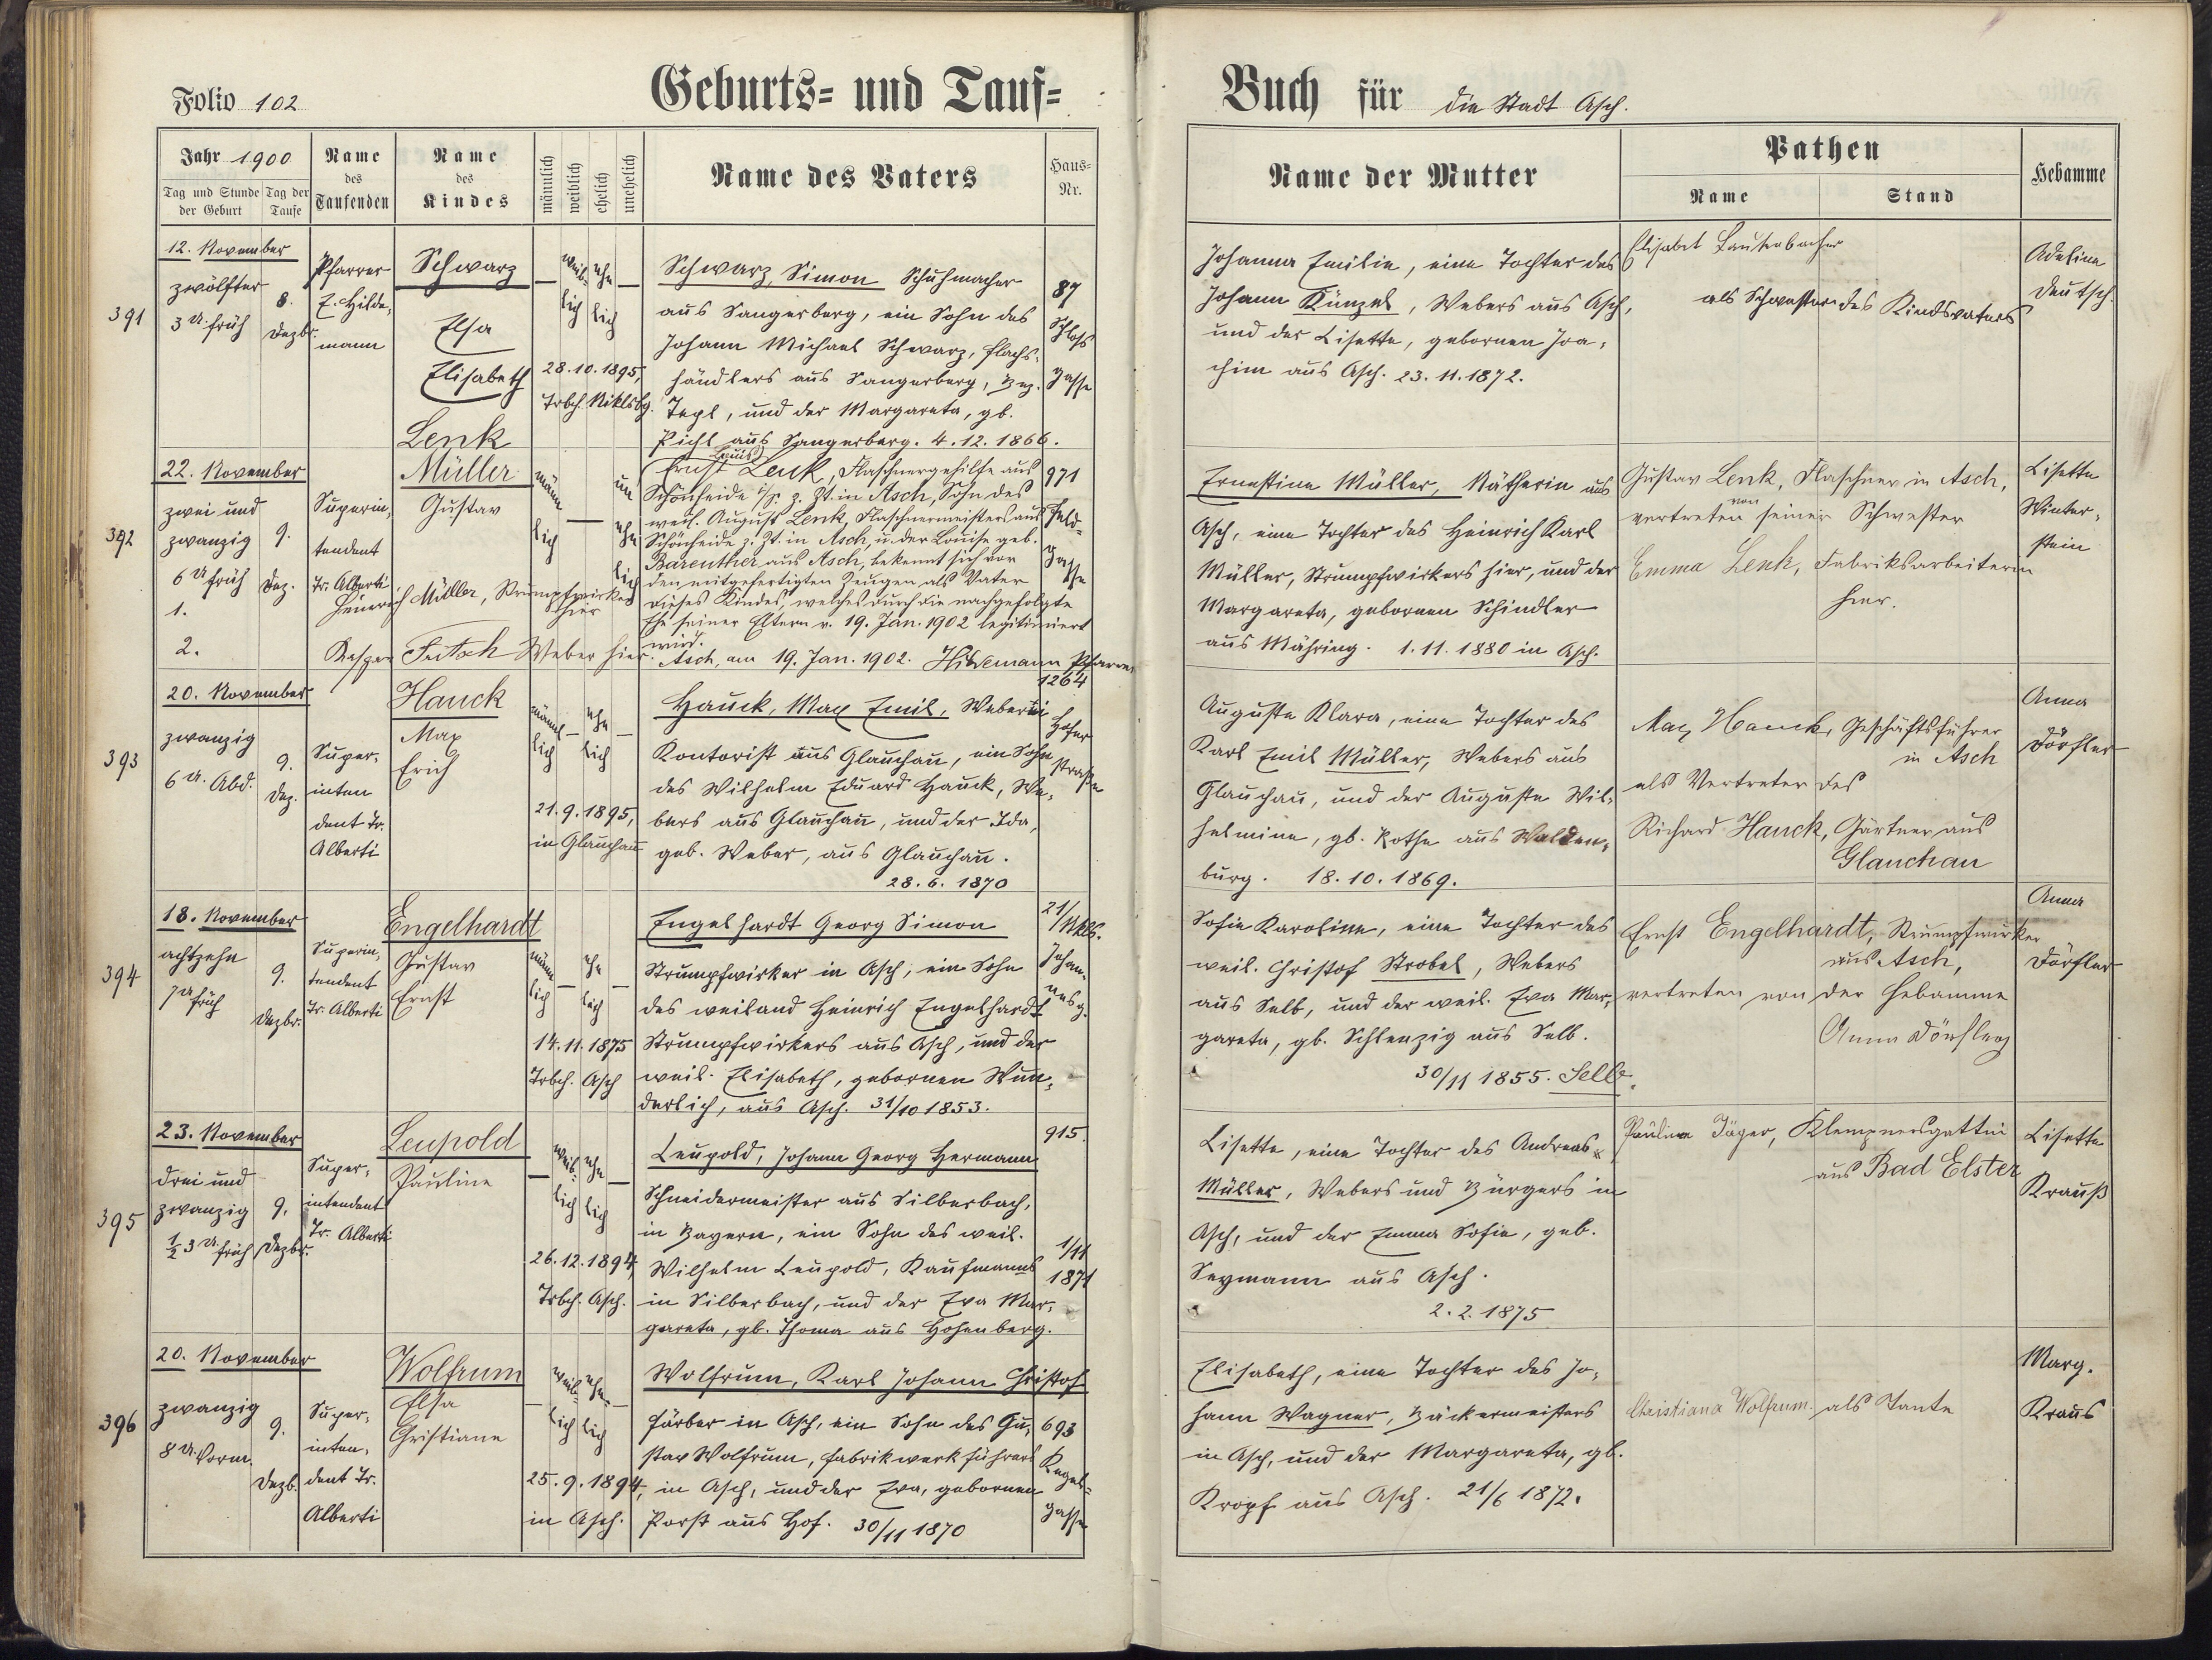 Folio 102
Geburts- und Tauf-
Buch für die Stadt Asch.
Jahr 1900
Tag und Stunde der Geburt
Tag der Taufe
Name des Taufenden
Name des Kindes
männlich
weiblich
ehelich
unehelich
Name des Vaters
Haus-Nr.
Name der Mutter
Pathen
Name
Stand
Hebamme
391
12. November
zwölfter
3 U. früh
8.
Dezbr.
Pfarrer
E. Hilde-
mann
Schwarz
Elsa
Elisabeth
weib-
lich
ehe
lich
28.10.1895,
Trbch. Niklsbg.
Schwarz, Simon Schuhmacher
aus Sangerberg, ein Sohn des
Johann Michael Schwarz, Flachs-
händlers aus Sangerberg, Bez.
Tepl, und der Margareta, gb.
Pichl aus Sangerberg. 4.12.1866.
87
Schloß
gasse
Johanna Emilie, eine Tochter des
Johann Künzel, Webers aus Asch,
und der Lisette, gebornen Joa-
chim aus Asch. 23.11.1872.
Elisabet Lautenbacher
als Schwester des Kindsvaters
Adeline
Deutsch.
392
22. November
zwei und
zwanzig
6 U früh
9.
Dez.
Superin-
tendent
Dr. Alberti
Lenk
Müller
Gustav
männ
lich
un
ehe
lich
1.
Heinrich Müller, Strumpfwirker
hier
2.
Kaspar Fritsch Weber hier.
Louis
Ernst Lenk, Flaschnergehilfe aus
Schönheide i/S. z. Zt. in Asch, Sohn des
weil. August Lenk, Flaschnermeisters aus
Schönheide z. Zt. in Asch, u. der Louise geb.
Bareuther aus Asch, bekennt sich vor
den mitgefertigten Zeugen als Vater
dieses Kindes, welches durch die nachgefolgte
Ehe seiner Eltern v. 19. Jan. 1902 legitimiert
wird.
Asch, am 19. Jan. 1902. Hildemann Pfarrer
971
Feld-
gasse
Ernestine Müller, Nätherin aus
Asch, eine Tochter des Heinrich Karl
Müller, Strumpfwirkers hier, und der
Margareta, gebornen Schindler
aus Mähring. 1.11.1880 in Asch.
Gustav Lenk, Flaschner in Asch,
vertreten von seiner Schwester
Emma Lenk, Fabriksarbeiterin
hier.
Lisette
Winter-
stein
393
20. November
zwanzig
6 U. Abd.
9.
Dez.
Super-
inten
dent Dr.
Alberti
Hauck
Max
Erich
männ
lich
ehe
lich
21.9.1895,
in Glauchau
Hauck, Max Emil, Weberei
Kontorist aus Glauchau, ein Sohn
des Wilhelm Eduard Hauck, We-
bers aus Glauchau, und der Ida,
geb. Weber, aus Glauchau.
28.6.1870
1264
Hofer
straße
Auguste Klara, eine Tochter des
Karl Emil Müller, Webers aus
Glauchau, und der Auguste Wil-
helmine, gb. Rothe aus Walden-
burg. 18.10.1869.
Max Hauck, Geschäftsführer
in Asch
als Vertreter des
Richard Hauck, Gärtner aus
Glauchau
Anna
Dörfler
394
18. November
achtzehn
7 U früh
9.
Dezbr.
Superin-
tendent
Dr. Alberti
Engelhardt
Gustav
Ernst
männ
lich
ehe
lich
14.11.1875
Trbch. Asch
Engelhardt Georg Simon
Strumpfwirker in Asch, ein Sohn
des weiland Heinrich Engelhardt
Strumpfwirkers aus Asch, und der
weil. Elisabeth, gebornen Wun-
derlich, aus Asch. 31/10 1853.
21/
Johan-
nesg.
Sofie Karoline, eine Tochter des
weil. Christof Strobel, Webers
aus Selb, und der weil. Eva Mar-
gareta, gb. Schlenzig aus Selb.
30/11 1855. Selb.
Ernst Engelhardt, Strumpfwirker
aus Asch,
vertreten von der Hebamme
Anna Dörfler
Anna
Dörfler
395
23. November
drei und
zwanzig
1/2 3 U. früh
9.
Dezbr.
Super-
intendent
Dr. Alberti
Leupold
Pauline
weib-
lich
ehe
lich
26.12.1894,
Trbch. Asch.
Leupold, Johann Georg Hermann
Schneidermeister aus Silberbach,
in Bayern, ein Sohn des weil.
Wilhelm Leupold, Kaufmanns
in Silberbach, und der Eva Mar-
gareta, gb. Thoma aus Hohenberg.
915.
1/11
1871
Lisette, eine Tochter des Andreas
Müller, Webers und Bürgers in
Asch, und der Emma Sofie, geb.
Seymann aus Asch.
2.2.1875
Pauline Jäger, Klempnersgattin
aus Bad Elster
Lisette
Krauß
396
20. November
zwanzig
8 U. Vorm.
9.
Dezb.
Super-
inten-
dent Dr.
Alberti
Wolfrum
Elsa
Christiane
weib-
lich
ehe-
lich
25.9.1894,
in Asch.
Wolfrum, Karl Johann Christof
Färber in Asch, ein Sohn des Gu-
stav Wolfrum, Fabrikwerkführers
in Asch, und der Eva, gebornen
Porst aus Hof. 30/11 1870
693
Kegel-
gasse
Elisabeth, eine Tochter des Jo-
hann Wagner, Bäckermeisters
in Asch, und der Margareta, gb.
Kropf aus Asch. 21/6 1872.
Christiana Wolfrum. als Tante
Marg.
Kraus